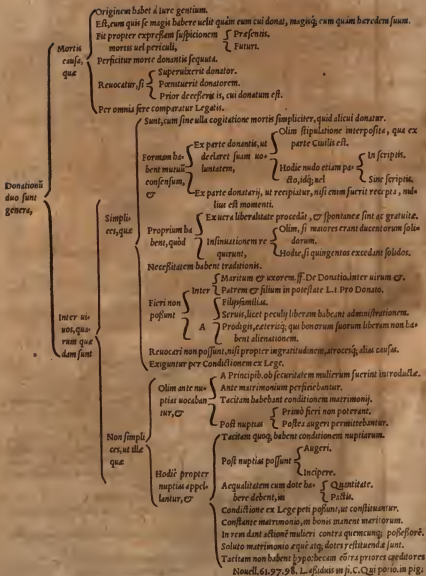 Originem habet à iure gentium.
Est, cum quis se magis habere uelit quàm eum cui donat, magisq́; cum quàm hæredem suum.
Fit propter expressam suspicionem
mortis uel periculi,
Præsentis.
Futuri.
Mortis
causa,
quæ
Perficitur morte donantis sequuta.
Reuocatur, si
Superuixerit donator.
Pœnituerit donatorem.
Prior decesserit is, cui donatum est.
Per omnia fere comparatur Legatis.
Donationũ
duo sunt
genera,
Sunt, cum sine ulla cogitatione mortis simpliciter, quid alicui donatur.
Formam ha-
bent mutuũ
consensum,
&
Ex parte donantis, ut
declaret suam uo-
luntatem,
Olim stipulatione interposita, quæ ex
parte Ciuilis est.
Hodie nudo etiam pa-
cto, idq́; uel
In scriptis.
Sine scriptis.
Ex parte donatarij, ut recipiatur, nisi enim fuerit recepta, nul-
lius est momenti.
Simpli-
ces, quæ
Proprium ha-
bent, quòd
Ex uera liberalitate procedãt, & spontaneæ sint ac gratuitæ.
Insinuationem re-
quirunt,
Olim, si maiores erant ducentorum soli-
dorum.
Hodie, si quingentos excedant solidos.
Necessitatem habent traditionis.
Inter ui-
uos, qua-
rum quæ
dam sunt
Fieri non
possunt
Inter
Maritum & uxorem. ff. De Donatio. inter uirum &.
Patrem & filium in potestate L.1 Pro Donato.
A
Filijsfamiliàs.
Seruis, licet peculij liberam habeant administrationem.
Prodigis, cæterisq́; qui bonorum suorum liberam non ha-
bent alienationem.
Reuocari non possunt, nisi propter ingratitudinem, atrocesq́; alias causas.
Exiguntur per Condictionem ex Lege.
Non simpli-
ces, ut illæ
quæ
Olim ante nu-
ptias uocaban
tur, &
A Principib. ob securitatem mulierum fuerint introductæ.
Ante matrimonium perficiebantur.
Tacitam habebant conditionem matrimonij.
Post nuptias
Primò fieri non poterant.
Postea augeri permittebantur.
Hodiè propter
nuptias appel-
lantur, &
Tacitam quoq́; habent conditionem nuptiarum.
Post nuptias possunt
Augeri.
Incipere.
Aequalitatem cum dote ha-
bere debent, in
Quantitate.
Pactis.
Condictione ex Lege peti possunt, ut constituantur.
Constante matrimonio, in bonis manent maritorum.
In rem dant actionẽ mulieri contra quemcunq́; possessorẽ.
Soluto matrimonio æquè atq́; dotes restituendæ sunt.
Tacitam non habent hypothecam cõtra priores creditores
Nouell. 61. 97. 98. L. assiduis in fi. C. Qui potio. in pig.